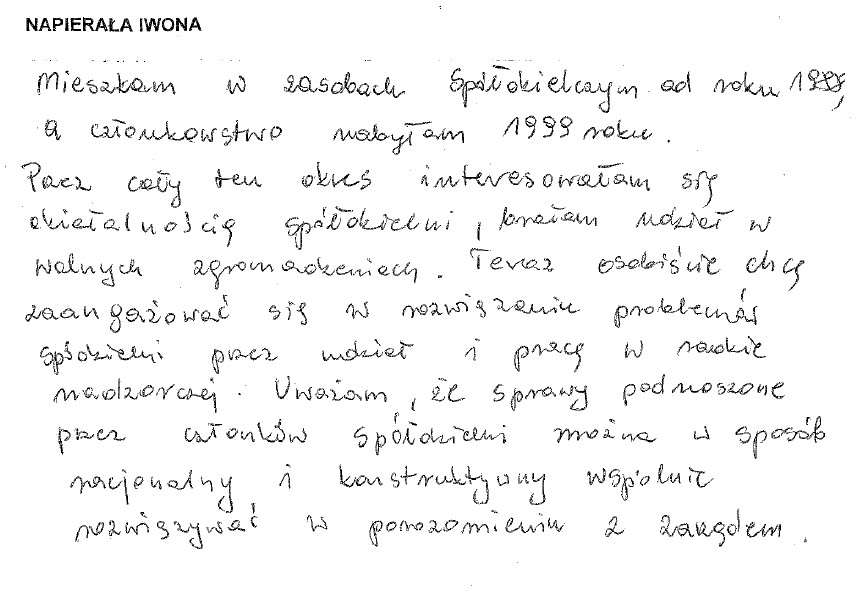 NAPIERAŁA IWONA
Mieszkam w zasobach Spółdzielczym od roku 1988,
a członkowstwo nabyłam 1999 roku.
Przez cały ten okres interesowałam się
działalnością spółdzielni, brałam udział w
walnych zgromadzeniach. Teraz osobiście chcę
zaangażować się w rozwiązaniu problemów
spódzielni przez udział i pracę w radzie
nadzorczej. Uważam, że sprawy podnoszone
przez członków spółdzielni można w sposób
racjonalny i konstruktywny wspólnie
rozwiązywać w porozomieniu z zarządem.